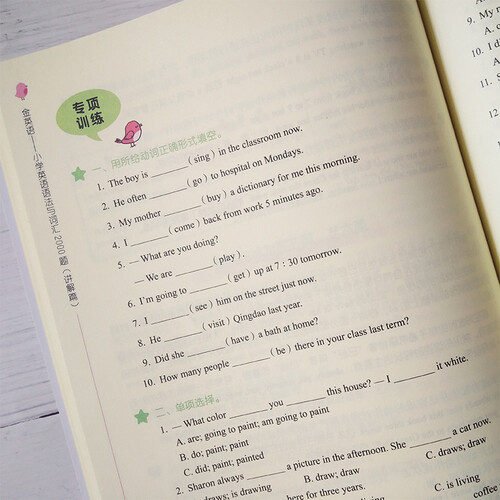 金英语——小学英语语法与词汇2000题（讲解篇）
专项
训练
一、用所给动词正确形式填空。
1. The boy is ________ ( sing ) in the classroom now.
2. He often ________ ( go ) to hospital on Mondays.
3. My mother ________ ( buy ) a dictionary for me this morning.
4. I ________ ( come ) back from work 5 minutes ago.
5. — What are you doing?
— We are ________ ( play ).
6. I'm going to ________ ( get ) up at 7 : 30 tomorrow.
7. I ________ ( see ) him on the street just now.
8. He ________ ( visit ) Qingdao last year.
9. Did she ________ ( have ) a bath at home?
10. How many people ________ ( be ) there in your class last term?
二、单项选择。
1. — What color ________ you ________ this house? — I ________ it white.
A. are; going to paint; am going to paint
B. do; paint; paint
C. did; paint; painted
2. Sharon always ________ a picture in the afternoon. She ________ a cat now.
draws; is drawing B. draw; draw C. draws; draw
here for three years.
C. is living
coffee
9. My
10. I di
A.
11. S
12